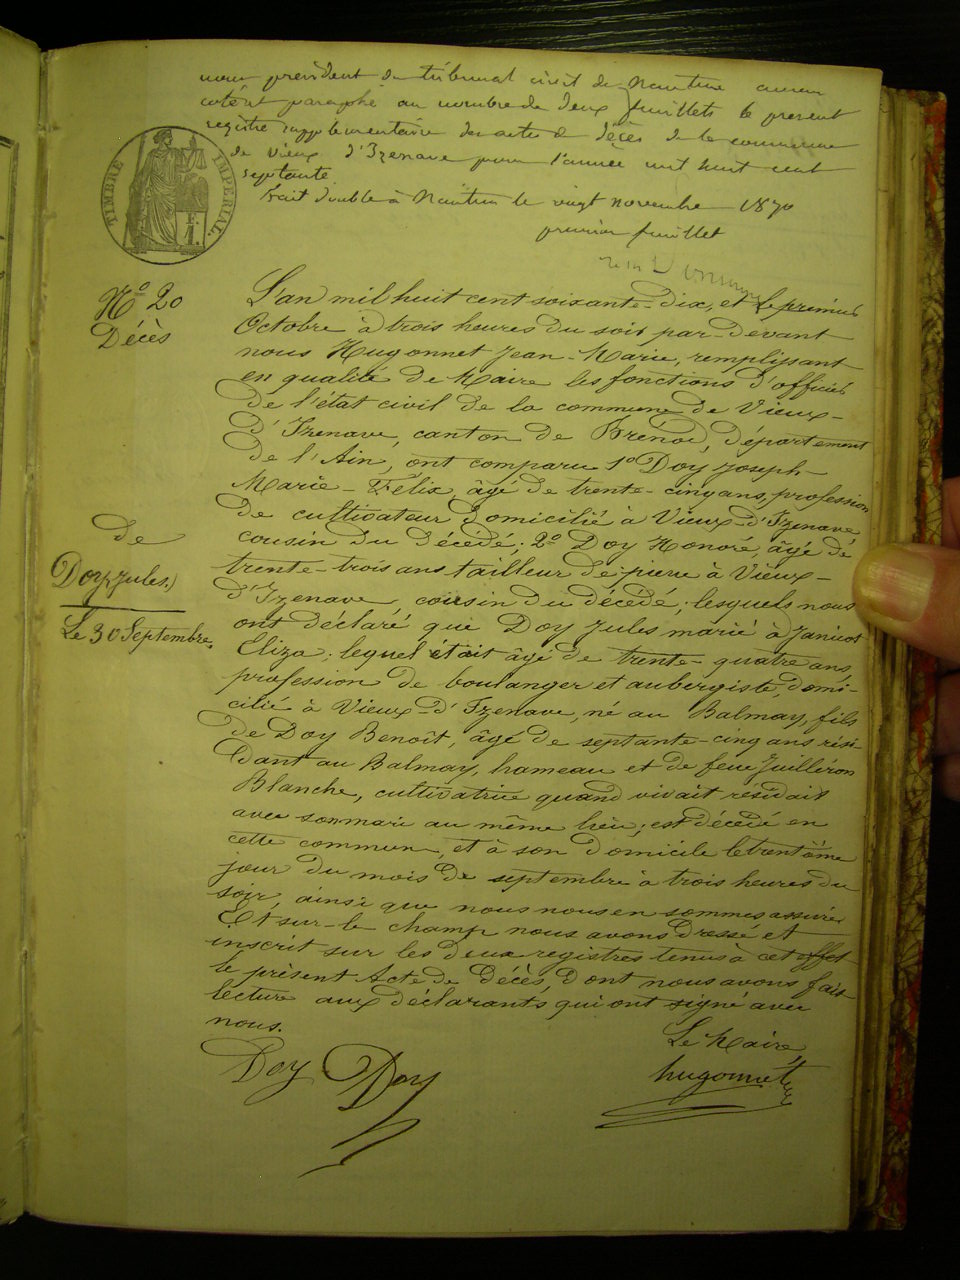 nous président du tribunal civil de Nantua avons
coté et paraphé au nombre de deux feuillets le présent
registre supplémentaire des actes de décès de la commune
de Vieux d'Izenave pour l'année mil huit cent
septante
Fait double à Nantua le vingt novembre 1870
premier feuillet
TIMBRE IMPERIAL.
F.
1.
No 20
Décès
L'an mil huit cent soixante-dix, et le premier
Octobre à trois heures du soir par-devant
nous Hugonnet Jean-Marie, remplissant
en qualité de Maire les fonctions d'officier
de l'état civil de la commune de Vieux-
d'Izenave, canton de Brénod, département
de l'Ain, ont comparu 1o Doy Joseph-
Marie-Félix, âgé de trente-cinq ans, profession
de cultivateur domicilié à Vieux-d'Izenave
cousin du décédé; 2o Doy Honoré, âgé de
trente-trois ans tailleur de pierre à Vieux-
d'Izenave, cousin du décédé; lesquels nous
ont déclaré que Doy Jules marié à Janicot
Eliza; lequel était âgé de trente-quatre ans,
profession de boulanger et aubergiste, domi-
cilié à Vieux-d'Izenave, né au Balmay, fils
de Doy Benoît, âgé de septante-cinq ans rési-
dant au Balmay, hameau et de feue Juilléron
Blanche, cultivatrice quand vivait résidait
avec son mari au même lieu; est décédé en
cette commune, et à son domicile le trentième
jour du mois de septembre à trois heures du
soir, ainsi que nous nous en sommes assuré.
Et sur-le champ nous avons dressé et
inscrit sur les deux registres tenus à cet effet
le présent Acte de Décès, dont nous avons fait
lecture aux déclarants qui ont signé avec
nous.
de
Doy Jules.)
Le 30 Septembre.
Le Maire,
Doy Doy hugonnet